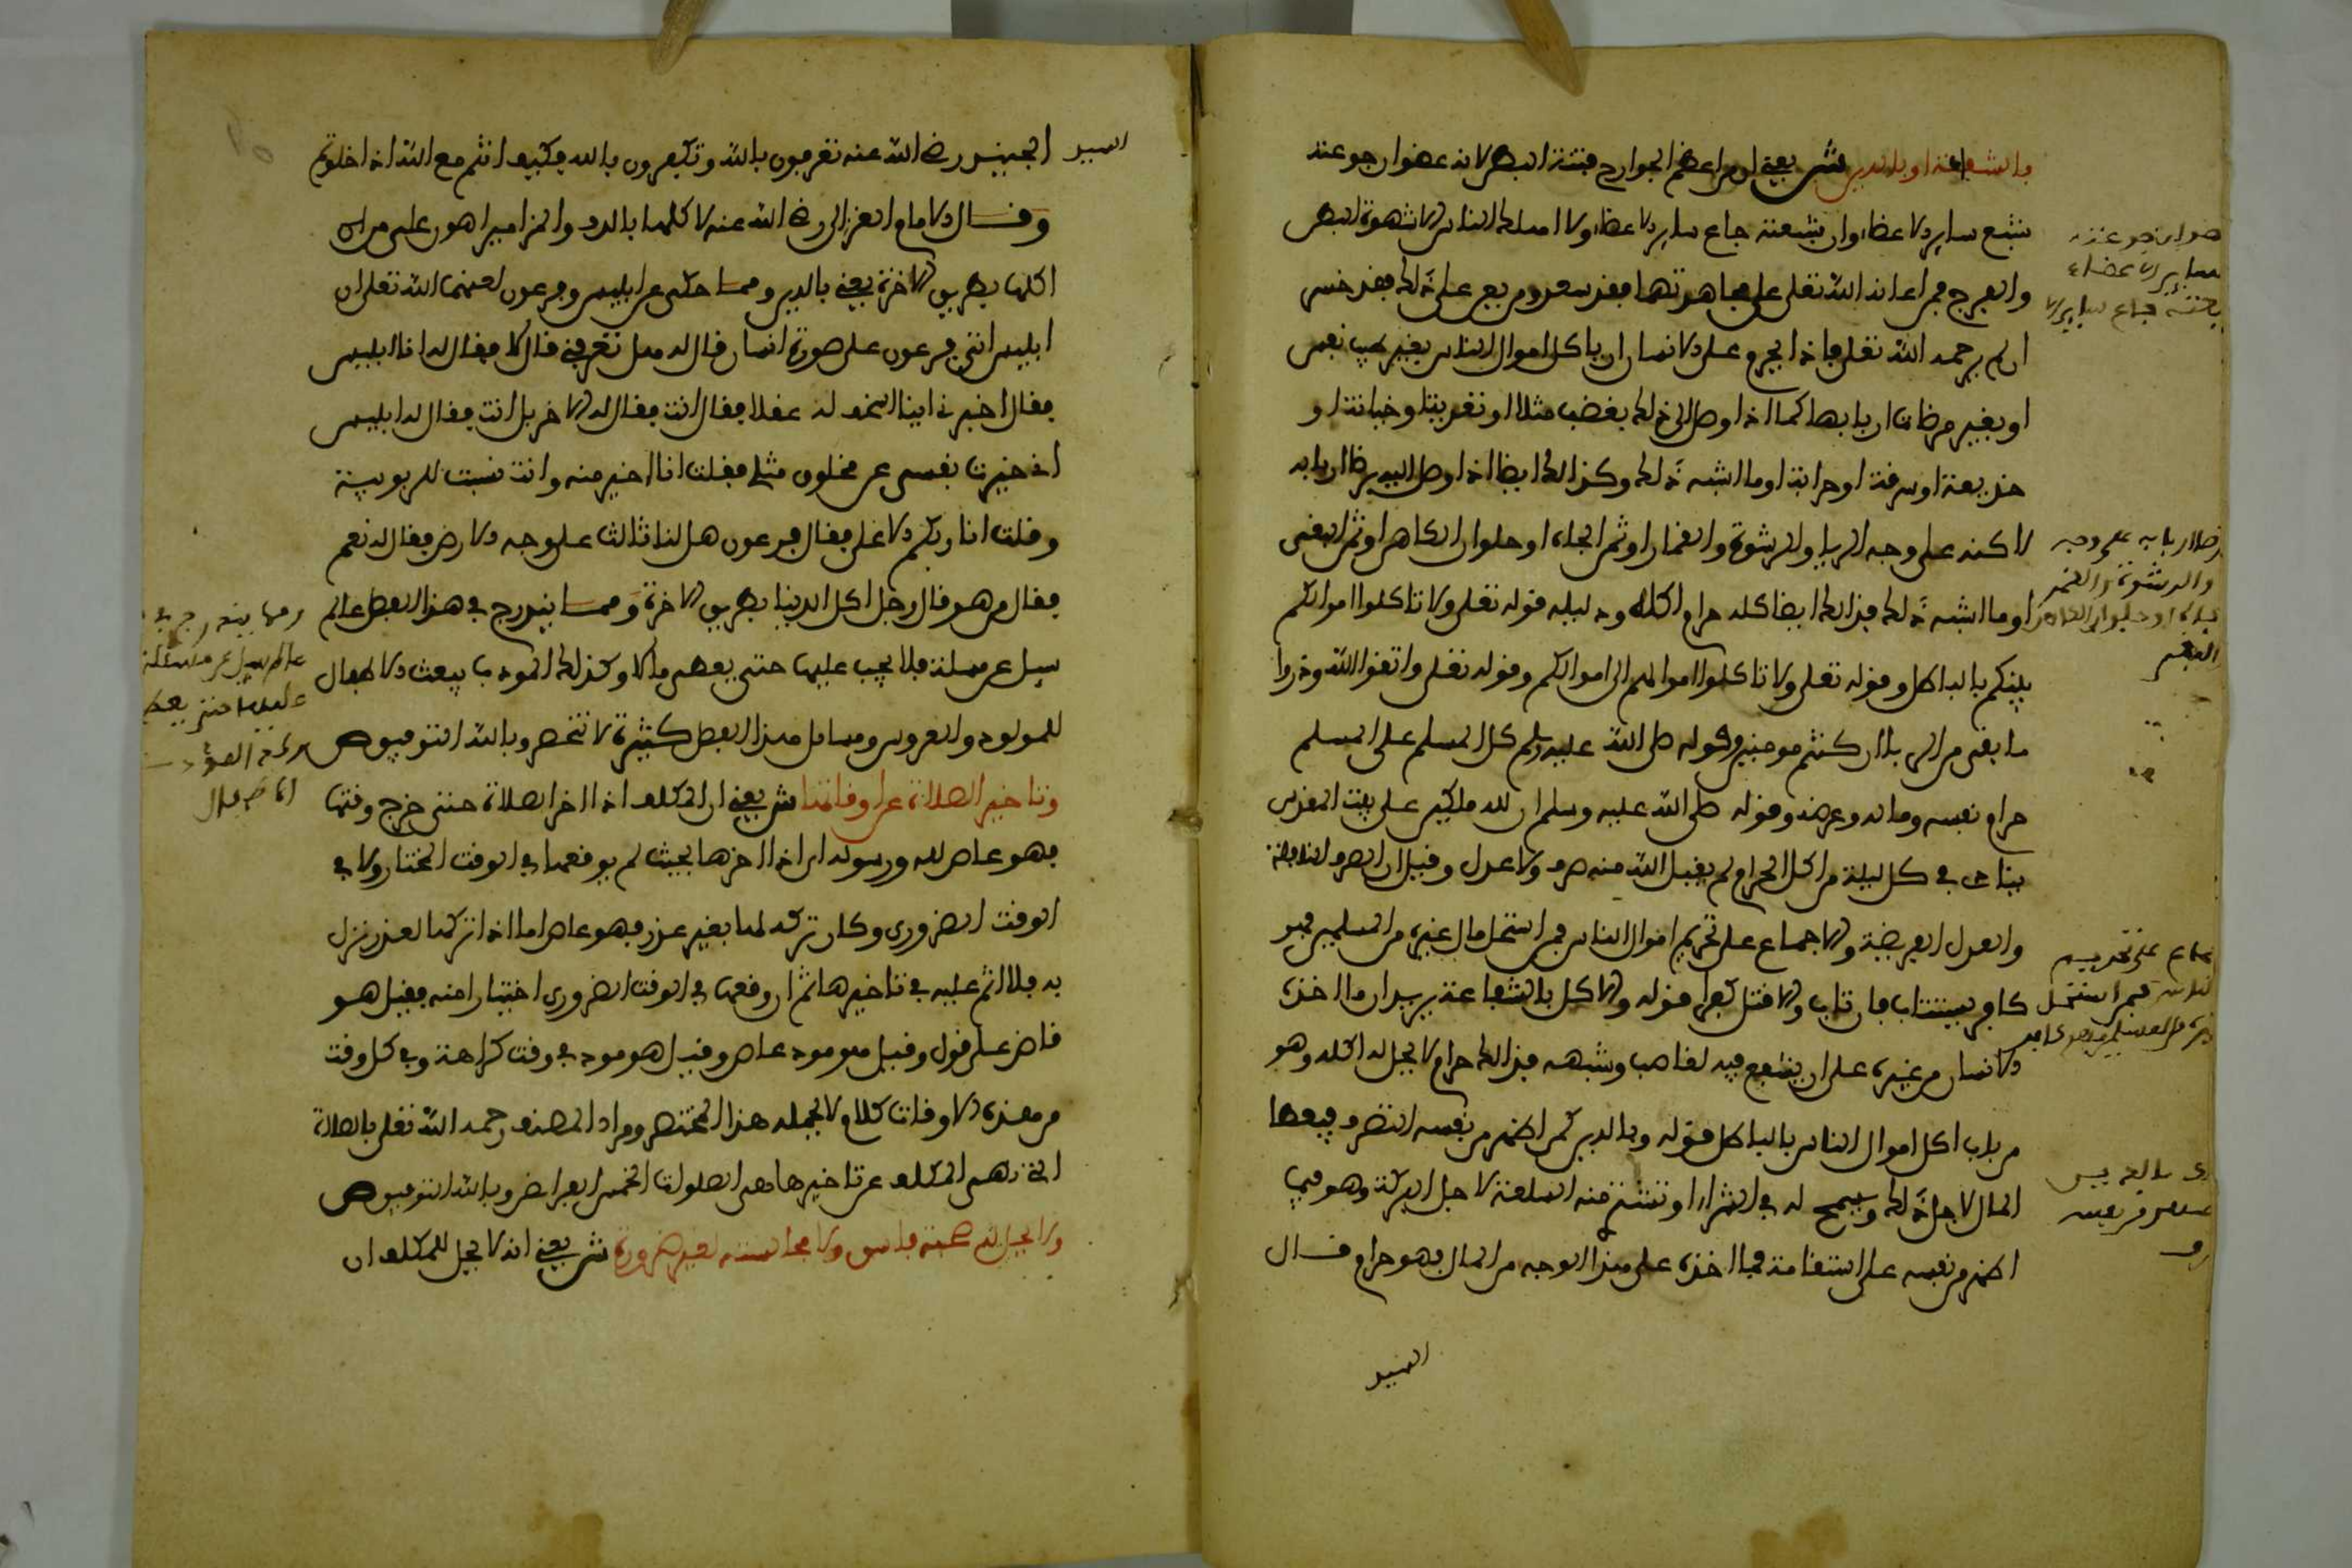 بالشفاعة او بالدين ش يعني ان من اعظم الجوارح فتنة البطن لانه عضوان جوعته
شبع ساير الاعضا وان شبعته جاع ساير الاعضا ولا اهلك الناس الا شهوة البطن
والفرج فمن اعانه الله تعلى على مجاهدتهما فقد سعد ومن يعن على ذلك فقد خسر
ان لم يرحمه الله تعلى فاذا يحرم على الانسان ان ياكل اموال الناس بغير طيب نفس
او بغير مرضات اربابها كما اذا وصل الى ذلك بغضب مثلا او تعدية او خيانة او
خديعة او سرقة او حرابة او ما اشبه ذلك وكذالك ايضا اذا وصل اليه برضا اربابه
لاكنه على وجه الربا والرشوة والقمار او ثمن الجاه او حلوان الكاهن او ثمن المغنى
او ما اشبه ذلك فذالك ايضا كله حرام اكله ودليله قوله تعلى ولا تاكلوا اموالكم
بينكم بالباطل وقوله تعلى ولا تاكلوا اموالهم الى اموالكم وقوله تعلى واتقوا الله وذروا
ما بقى من الربا ان كنتم مومنين وقوله صلى الله عليه وسلم كل المسلم على المسلم
حرام نفسه وماله وعرضه وقوله صلى الله عليه وسلم ان لله ملكين على بيت المقدس
ينادى في كل ليلة من اكل الحرام لم يقبل الله منه صرف ولا عدل وقيل ان الصرف النافلة
والعدل الفريضة والاجماع على تحريم اموال الناس فمن استحل مال غيره من المسلمين فهو
كافر يستتاب فان تاب والا قتل كفرا قوله والاكل بالشفاعة يريد ان ما اخذه
الانسان من غيره على ان يشفع فيه لغاصب وشبهه فذالك حرام لا يحل له اكله وهو
من باب اكل اموال الناس بالباطل قوله وبالدين كمن اظهر من نفسه التصوف فيعطا
المال لاجل ذلك ويسمح له في الشراء او تشترى منه السلعة لاجل البركة وهو فيما
اظهر من نفسه على استقامة فما اخذه على هذا الوجه من المال فهو حرام قال
الجنيد
عضو ان جوعته
ساير الاعضاء
يعته جاع ساير الا
رضا اربابه على وجه
والرشوة والقمر
الجاه او حلوان الكاهن
المغنى
جماع على تحريم
الناس فمن استحل
غيره من المسلمين فهو كافر
وله بالدين
نفسه
الجنيد
الجنيد رضي الله عنه تعرفون بالله وتكفرون بالله فكيف انتم مع الله اذا خلوتم
وقال الامام الغزالي رضي الله عنه لا كلها بالدف والمزامير اهون على من ان
اكلها بطريق الاخرة يعني بالدين ومما حكى عن ابليس وفرعون لعنهما الله تعلى ان
ابليس اتى فرعون على صورة انسان قال له هل تعرفني قال لا فقال له انا ابليس
فقال اخبرني اينا اسخف لله عقلا فقال انت فقال له الاخر بل انت فقال له ابليس
اني خيرت نفسي عن مخلوق مثلي فقلت انا اخير منه وانت نسبت للربوبية
وقلت انا ربكم الاعلى فقال فرعون هل لنا ثالث على وجه الارض فقال له نعم
فقال من هو قال رجل اكل الدنيا بطريق الاخرة ومما يندرج في هذا الفصل عالم
سيل عن مسلة فلا يجيب عليها حتى يعطى مالا وكذلك المودب يبعث الاطفال
للمولود والعروس ومسايل هذا الفصل كثيرة لا تنحصر وبالله التوفيق ص
وتاخير الصلاة عن اوقاتها ش يعني ان المكلف اذا اخر الصلاة حتى خرج وقتها
فهو عاص لله ورسوله ان اذا اخرها بحيث لم يوقعها في الوقت المختار ولا في
الوقت الضروري وكان تركه لها بغير عذر فهو عاص اما اذا تركها لعذر نزل
به فلا اثم عليه في تاخيرها ثم ان وقعها في الوقت الضروري اختيارا منه فقيل هو
قاض على قول وقيل هو مود عاص وقيل هو مود في وقت كراهة وفي كل وقت
من هذه الاوقات كلام لا يحمله هذا المختصر ومراد المصنف رحمه الله تعلى بالصلاة
التي نهى المكلف عن تاخيرها هى الصلوات الخمس الفرايض وبالله التوفيق ص
ولا يحل له صحبة فاسق ولا مجالسته لغير ضرورة ش يعني انه لا يحل للمكلف ان
ومما يندرج في
عالم سيل عن مسئلة
عليها حتى يعط
لك المؤدب
الاطفال